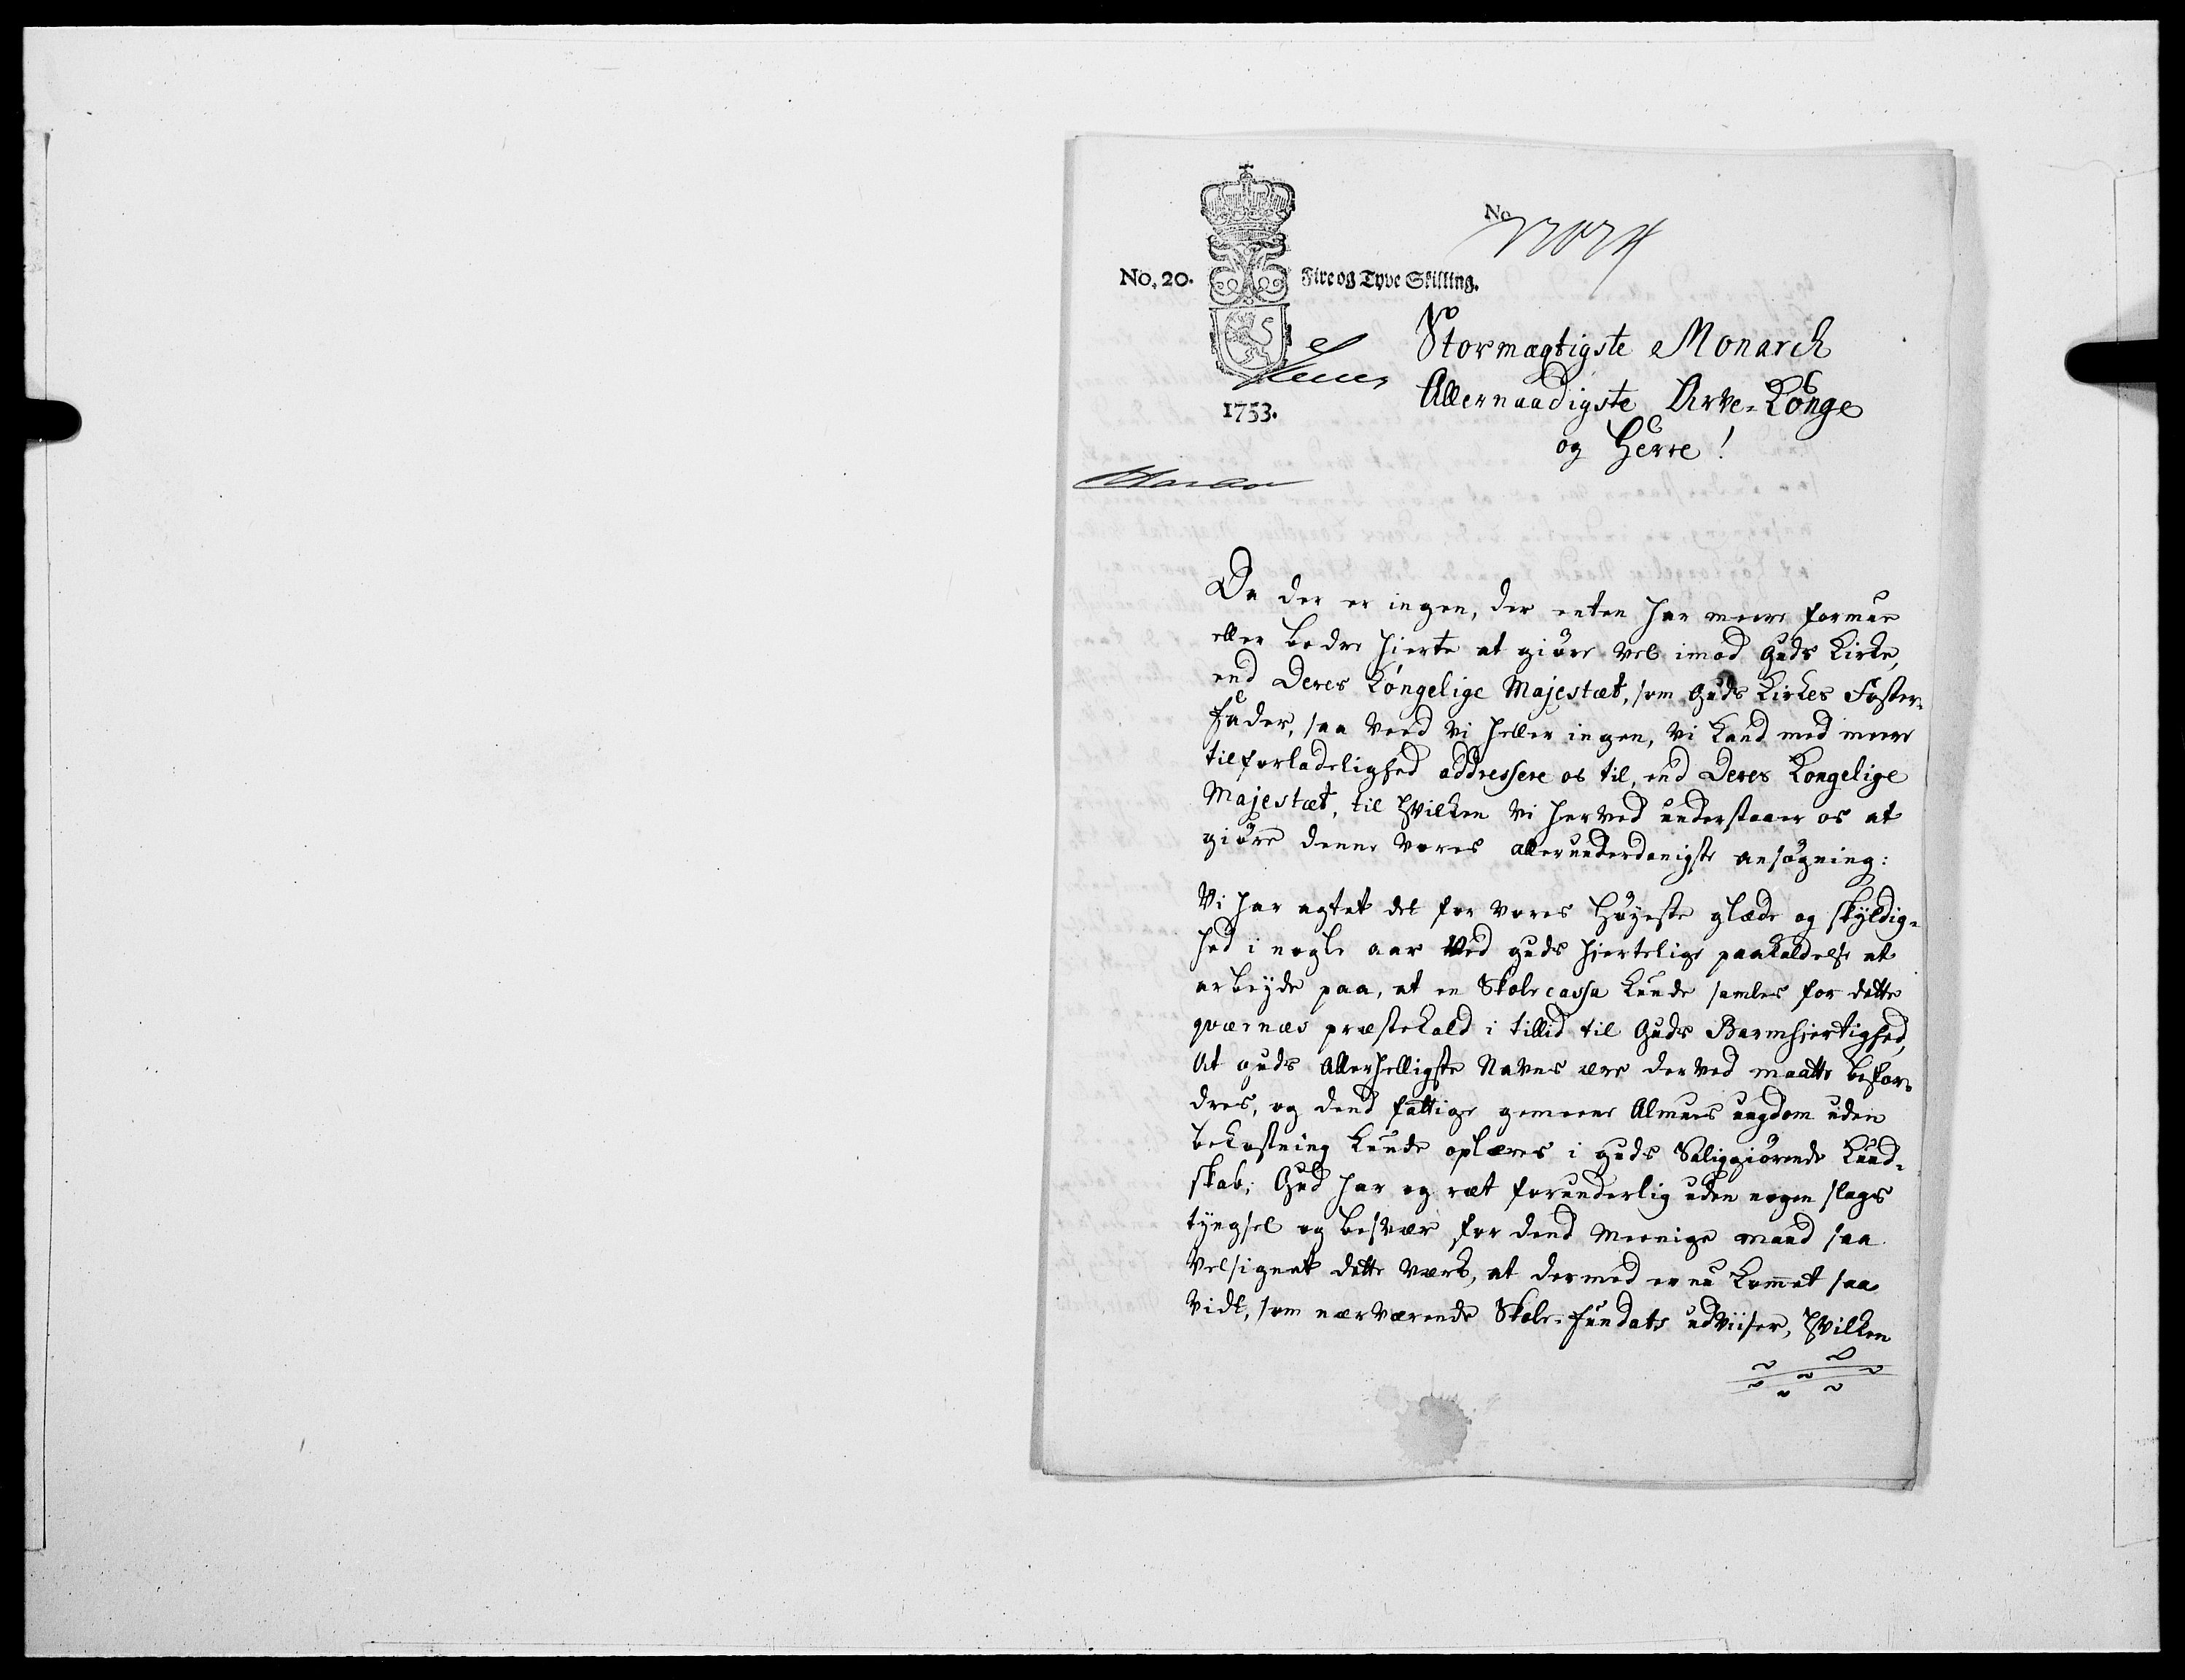 No.
No. 20. Fire og Tyve Skilling.
Stormægtigste Monarch
Allernaadigste Arve-Konge
1753.
og Herre!
Da der er ingen, der enten har meere formue
eller bedre hierte at giöre vel imod Guds Kirke,
end Deres Kongelige Majestæt, som Guds Kirkes Foster-
fader, saa veed vi heller ingen, vi kand med meere
tilforladelighed addressere os til, end Deres Kongelige
Majestæt, til hvilken vi herved understaaer os at
giöre denne vores allerunderdanigste ansögning:
Vi har agtet det for vores höyeste glæde og skyldig-
hed i nogle aar ved Guds hiertelige paakaldelse at
arbeyde paa, at en Skole cassa kunde samles for dette
qværnæs præstekald i tillid til Guds Barmhiertighed,
At Guds Allerhelligste Navns ære derved maatte befor-
dres, og dend fattige gemeene Almues ungdom uden
bekostning kunde oplæres i Guds Saliggiörende Kund-
skab; Gud har og ræt forunderlig uden nogen slags
tyngsel og besvær for dend meenige mand saa
velsignet dette værk, at dermed er nu kom̄et saa
vidt, som nærværende Skole-fundats udviiser, hvilken